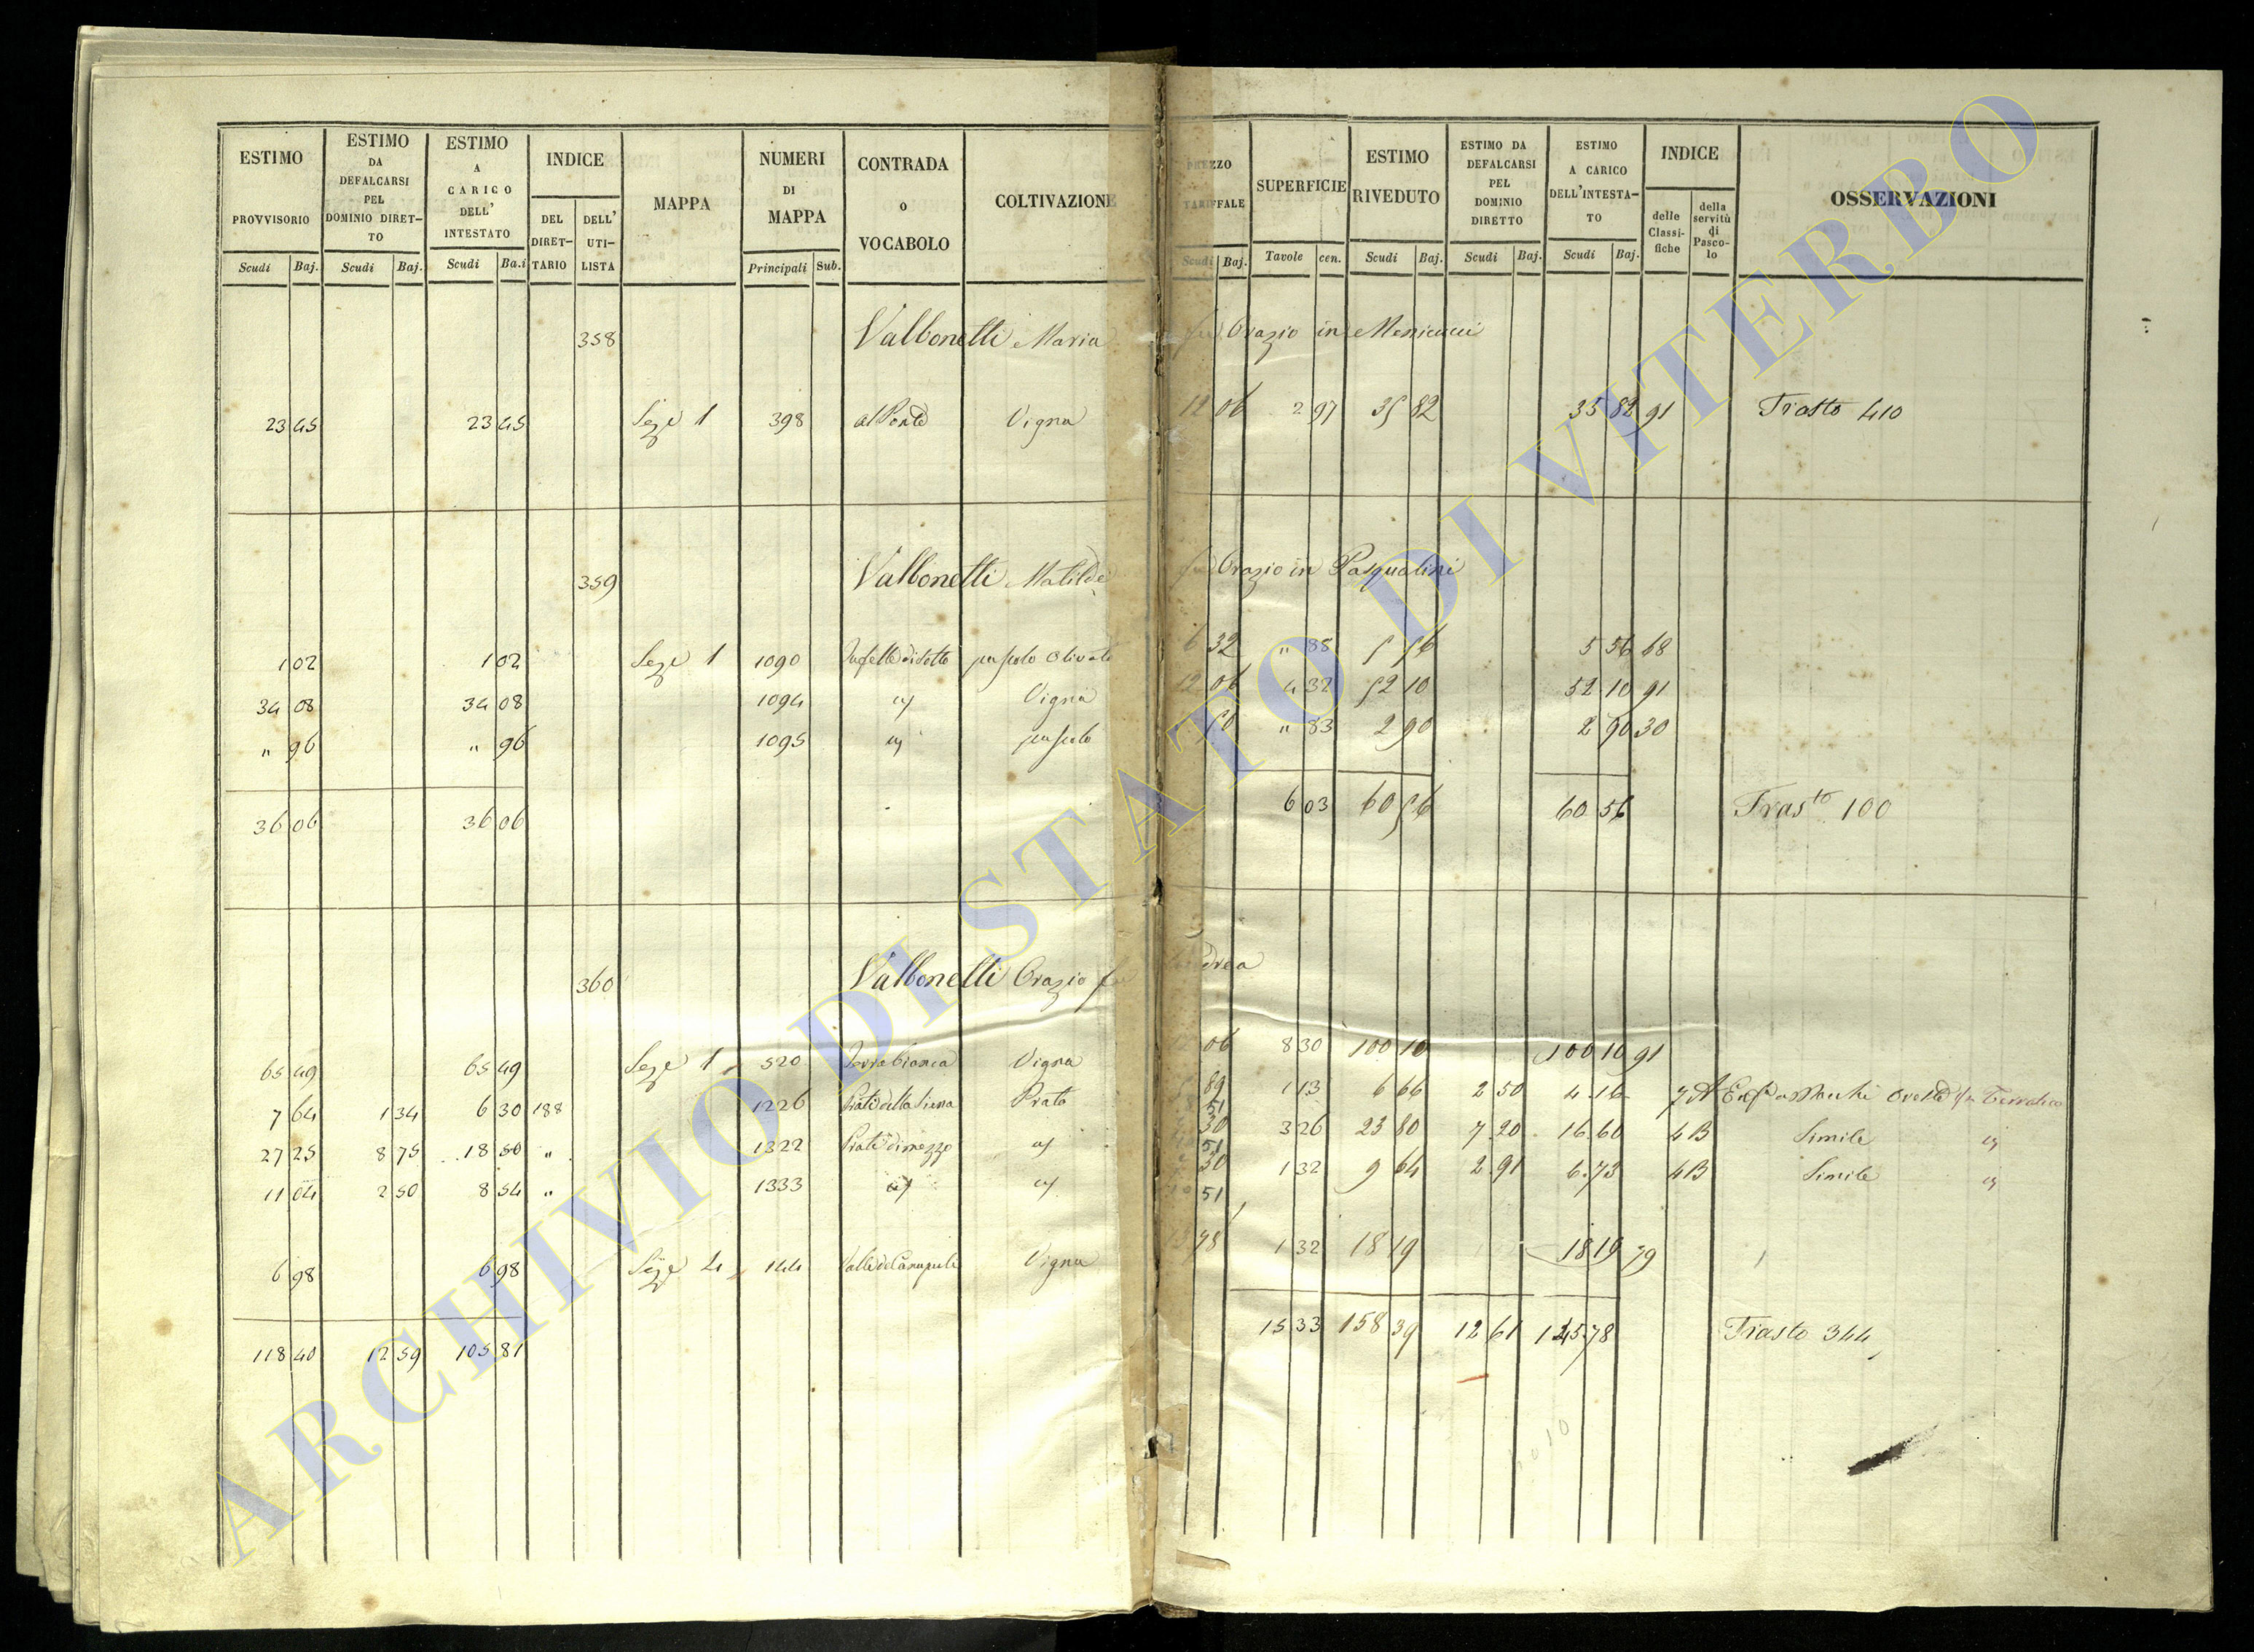 ESTIMO PROVVISORIO Scudi Baj.
ESTIMO DA DEFALCARSI PEL DOMINIO DIRET-TO Scudi Baj.
ESTIMO A CARICO DELL' INTESTATO Scudi Ba.i
INDICE DEL DIRET-TARIO DELL' UTI-LISTA
MAPPA
NUMERI DI MAPPA Principali Sub.
CONTRADA o VOCABOLO
COLTIVAZIONE
PREZZO TARIFFALE Scudi Baj.
SUPERFICIE Tavole cen.
ESTIMO RIVEDUTO Scudi Baj.
ESTIMO DA DEFALCARSI PEL DOMINIO DIRETTO Scudi Baj.
ESTIMO A CARICO DELL'INTESTA-TO Scudi Baj.
INDICE delle Classi-fiche della servitù di Pasco-lo
OSSERVAZIONI
358 Valbonelli Maria fu Orazio in Menicucci
23 45 23 45 Seze 1 398 al Ponte Vigna 12 06 2 97 35 82 35 82 91 Trasto 410
359 Valbonelli Matilde fu Orazio in Pasqualini
1 02 1 02 Seze 1 1090 di Sotto pascolo olivato 6 32 " 88 5 56 5 56 68
34 08 34 08 1094 Vigna 12 06 4 32 52 10 52 10 91
" 96 " 96 1095 pascolo 50 " 83 2 90 2 90 30
36 06 36 06 6 03 60 56 60 56 Trasto 100
360 Valbonelli Orazio fu Andrea
65 49 65 49 Seze 1 520 Terra bianca Vigna 06 8 30 100 10 100 10 91
7 64 1 34 6 30 188 1226 Prati della Prato 89 51 1 13 6 66 2 50 4 16 7 A
27 25 8 75 18 50 " 1322 Prati di mezzo 30 51 3 26 23 80 7 20 16 60 4 B Simile
11 04 2 50 8 54 " 1333 30 51 1 32 9 64 2 91 6 73 4 B Simile
6 98 6 98 Seze 4 144 Valle de Vigna 13 78 1 32 18 19 18 19 79
118 40 12 59 105 81 15 33 158 39 12 61 145 78 Trasto 344
ARCHIVIO DI STATO DI VITERBO